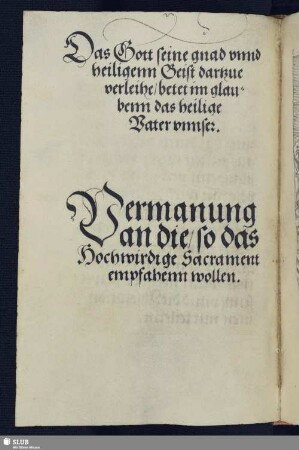 Das Gott seine gnad vnnd
heiligenn Geist dartzue
verleihe/ betet im glau-
benn das heilige
Vater vnnser.
Vermanung
an die/ so das
Hochwirdige Sacrament
empfahenn wollen.
SLUB